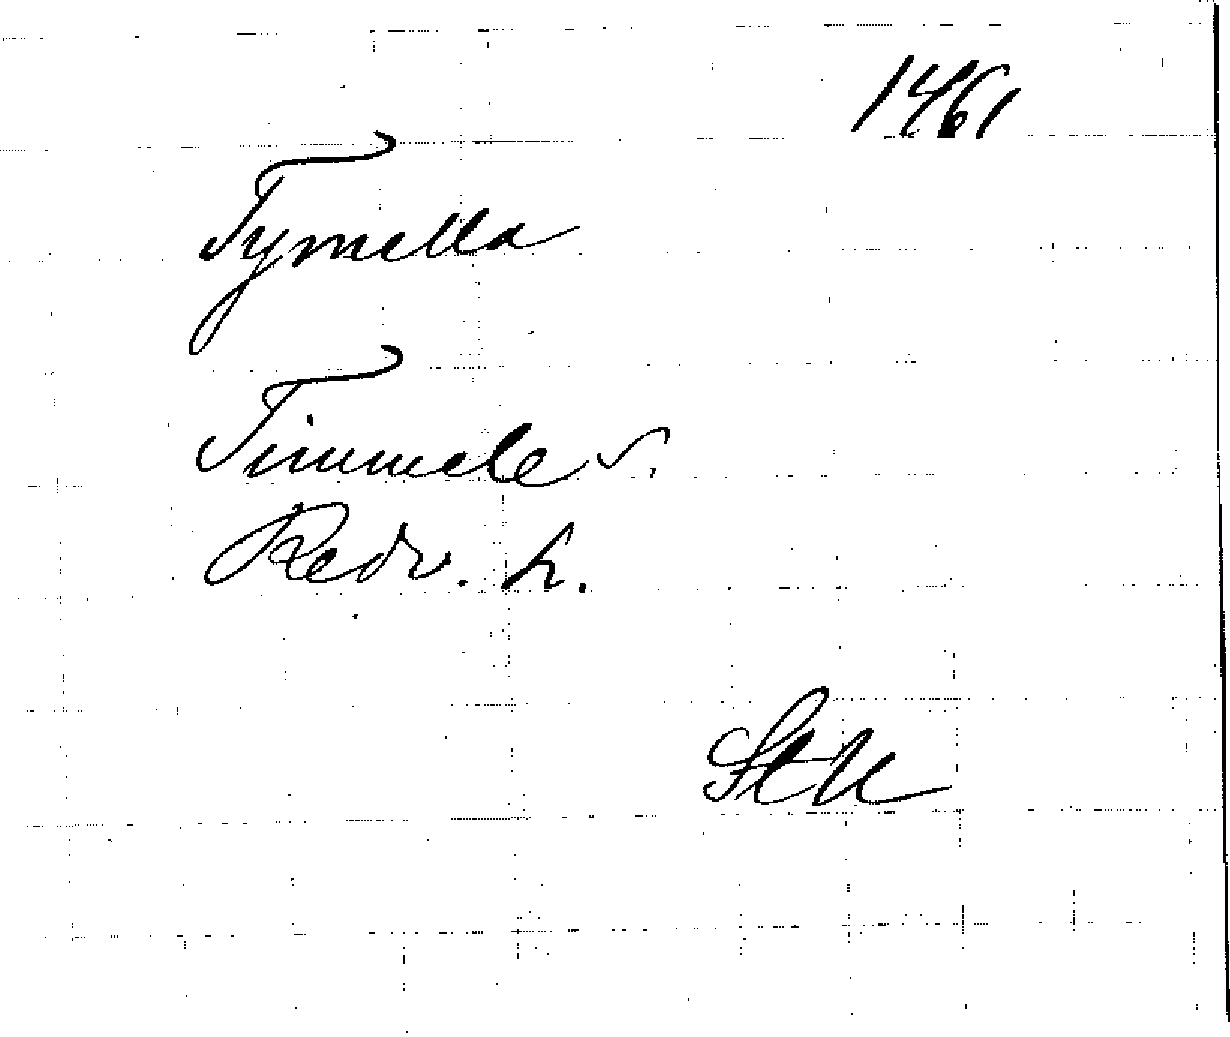 1461
Tymella
Timmele s.
Redv. h.
StU